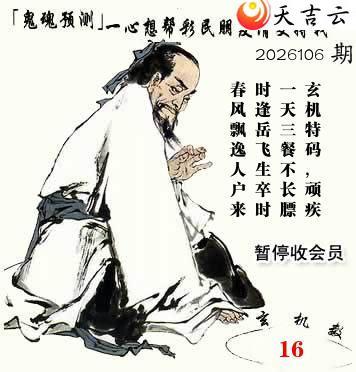 天吉云
「鬼魂预测」一心想帮彩民朋
2026106 期
玄机特码，顽疾
一天三餐不长膘
时逢岳飞生卒时
春风飘逸人户来
暂停收会员
玄机
16